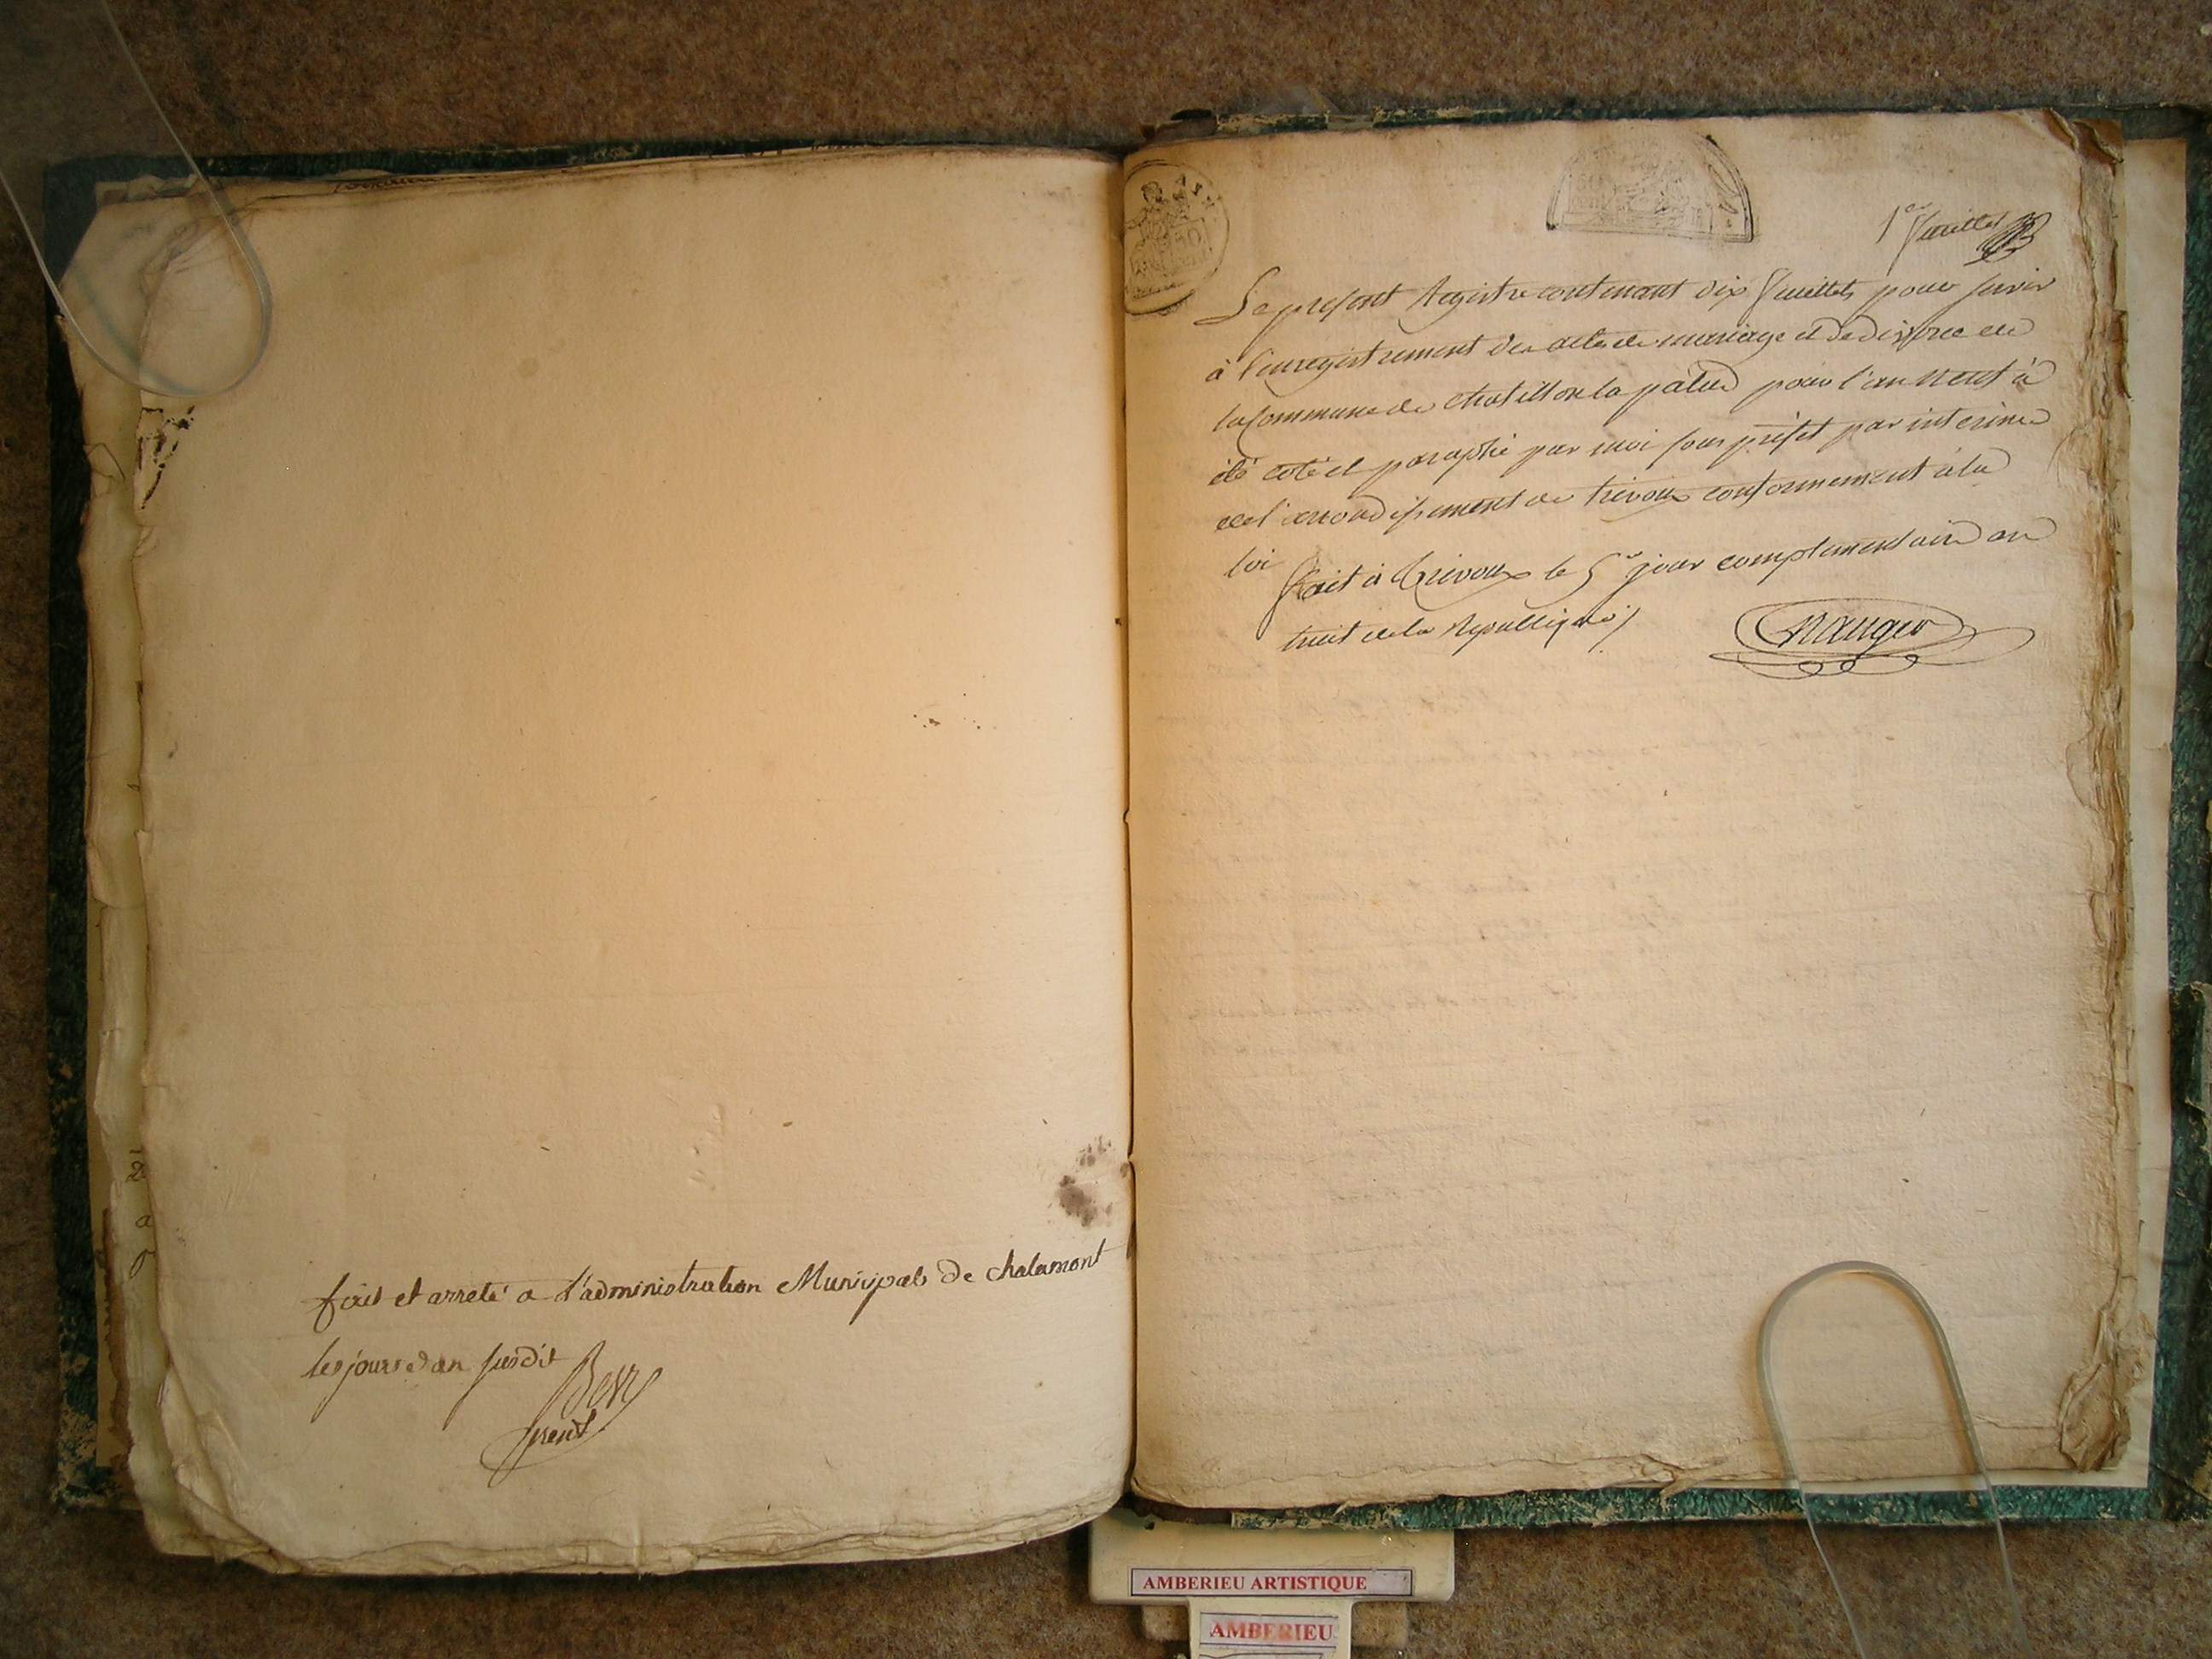 fait et arreté a l'administration Municipale de chalamont
les jours et an susdit
1er feuillet
Le present Registre contenant dix feuillets pour servir
à l'enregistrement des actes de mariage et de divorce de
la Commune de chatillon la palud pour l'an neuf à
été coté et paraphé par moi sous préfet par interime
de l'arrondissement de trévoux conformement à la
loi
fait à trevoux le 5e jour complementaire an
huit de la Republique
AMBERIEU ARTISTIQUE
AMBERIEU